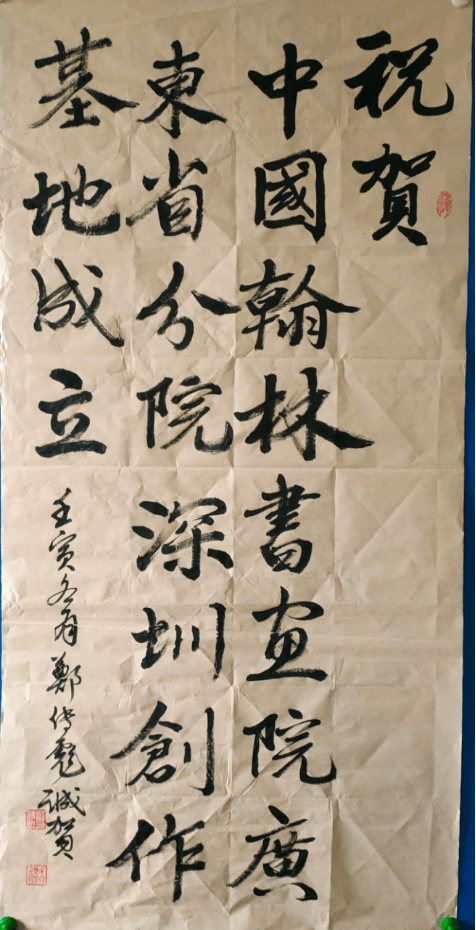 祝賀
中國翰林書画院廣
東省分院深圳創作
基地成立
壬寅冬月鄭传彪诚賀